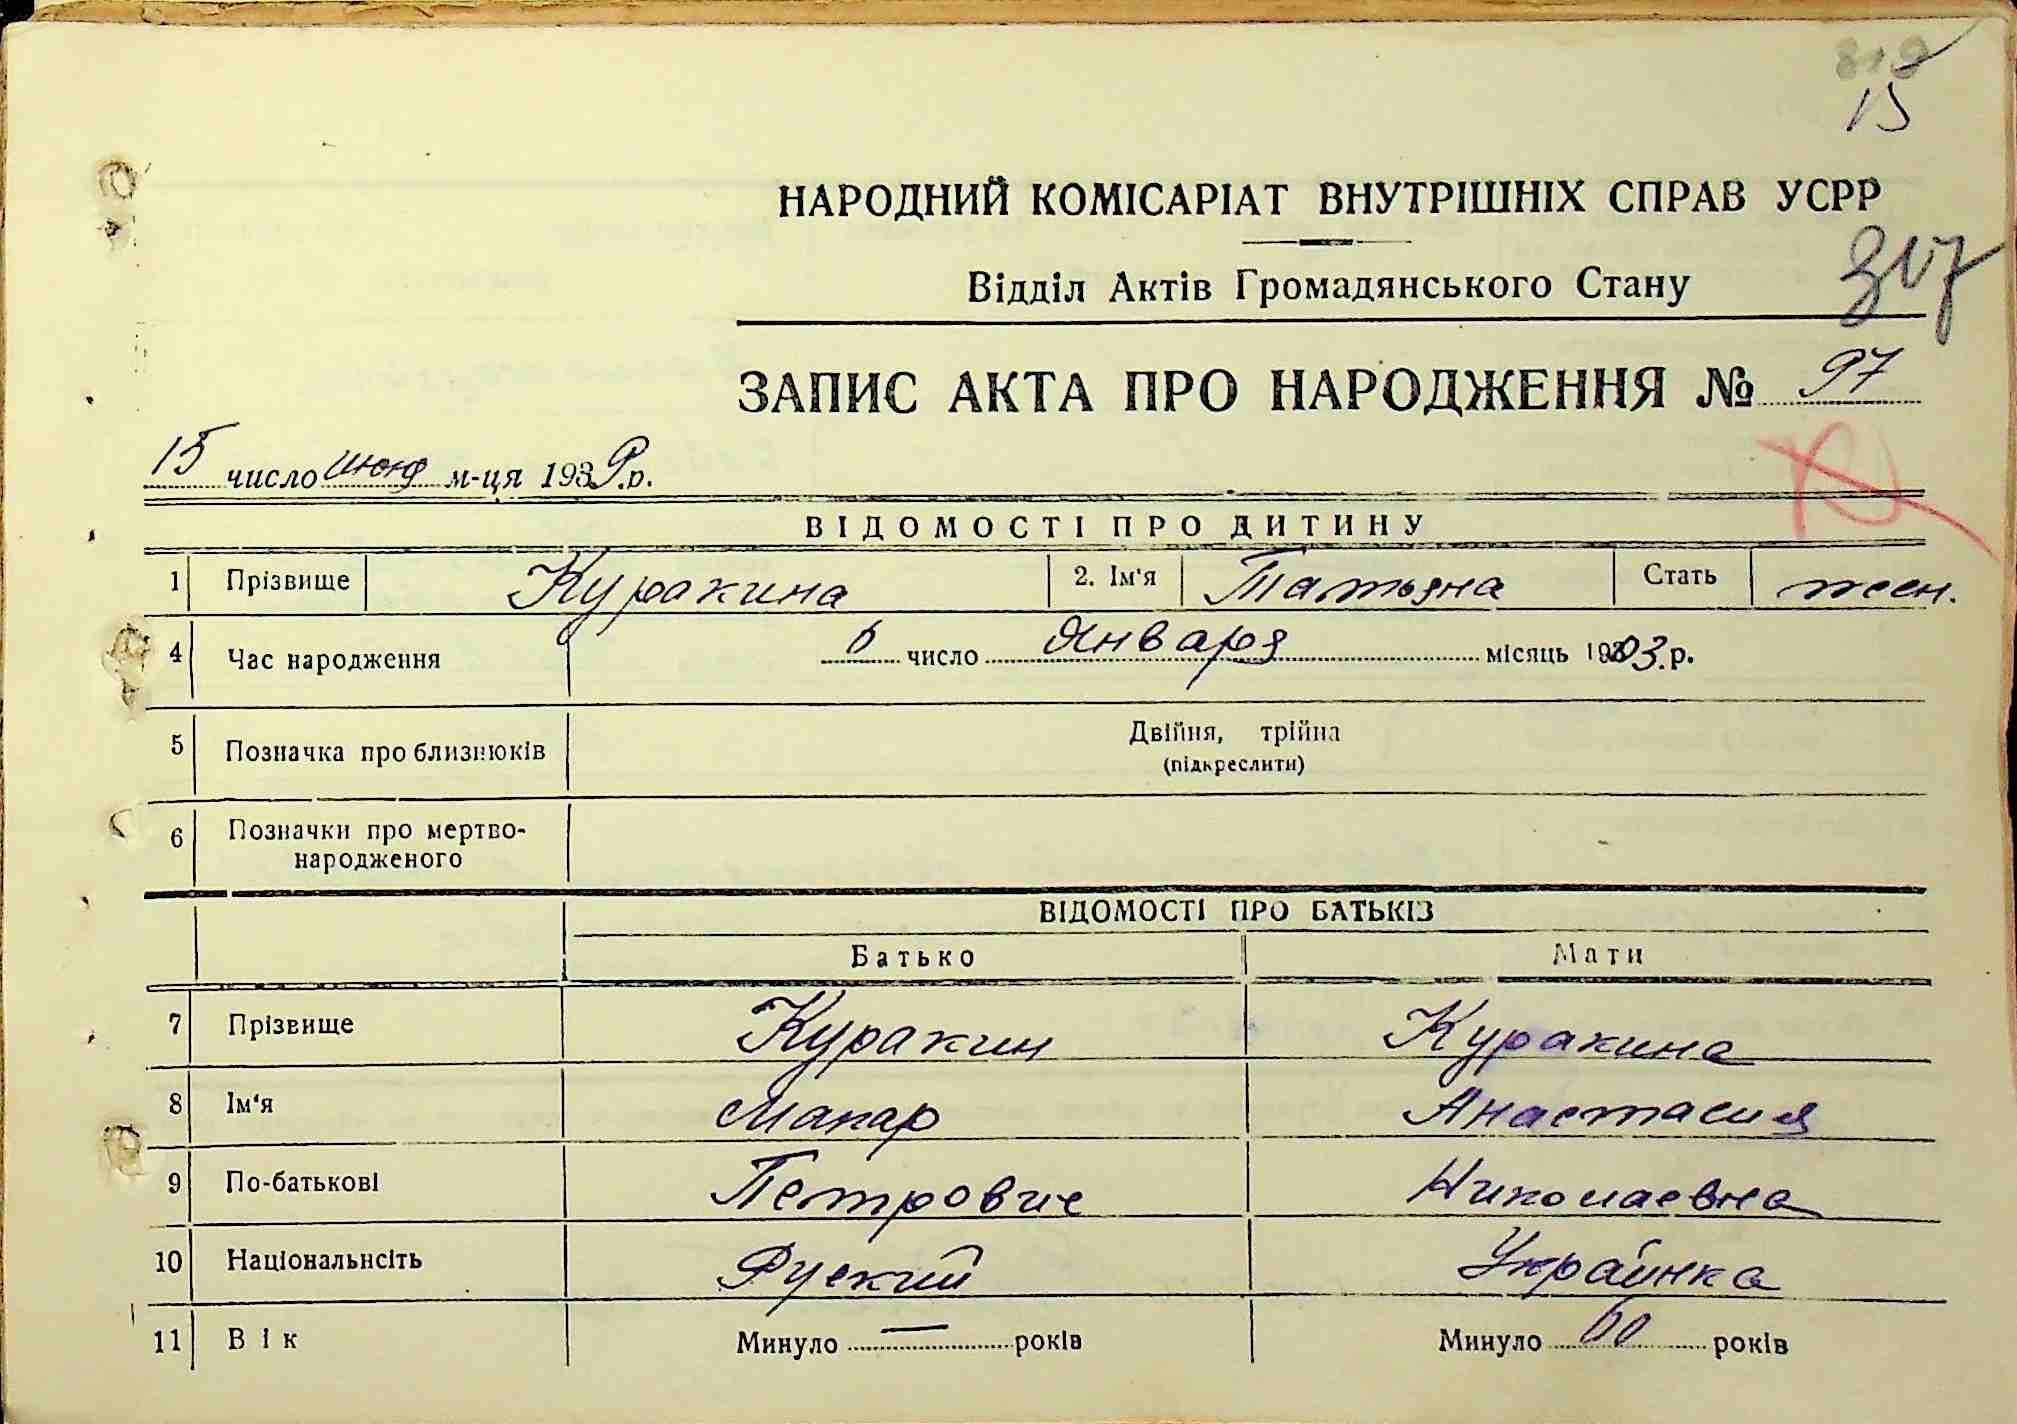 15
НАРОДНИЙ КОМІСАРІАТ ВНУТРІШНІХ СПРАВ УСРР
Відділ Актів Громадянського Стану
317
ЗАПИС АКТА ПРО НАРОДЖЕННЯ № 97
15 число июня м-ця 1939 р.
ВІДОМОСТІ ПРО ДИТИНУ
1 Прізвище Куракина 2. Ім'я Татьяна Стать жен.
4 Час народження 6 число Января місяць 1903 р.
5 Позначка про близнюків Двійня, трійна
(підкреслити)
6 Позначки про мертво-
народженого
ВІДОМОСТІ ПРО БАТЬКІЗ
Батько Мати
7 Прізвище Куракин Куракина
8 Ім'я Макар Анастасия
9 По-батькові Петрович Николаевна
10 Національнсіть Руский Украинка
11 Вік Минуло — років Минуло 60 років